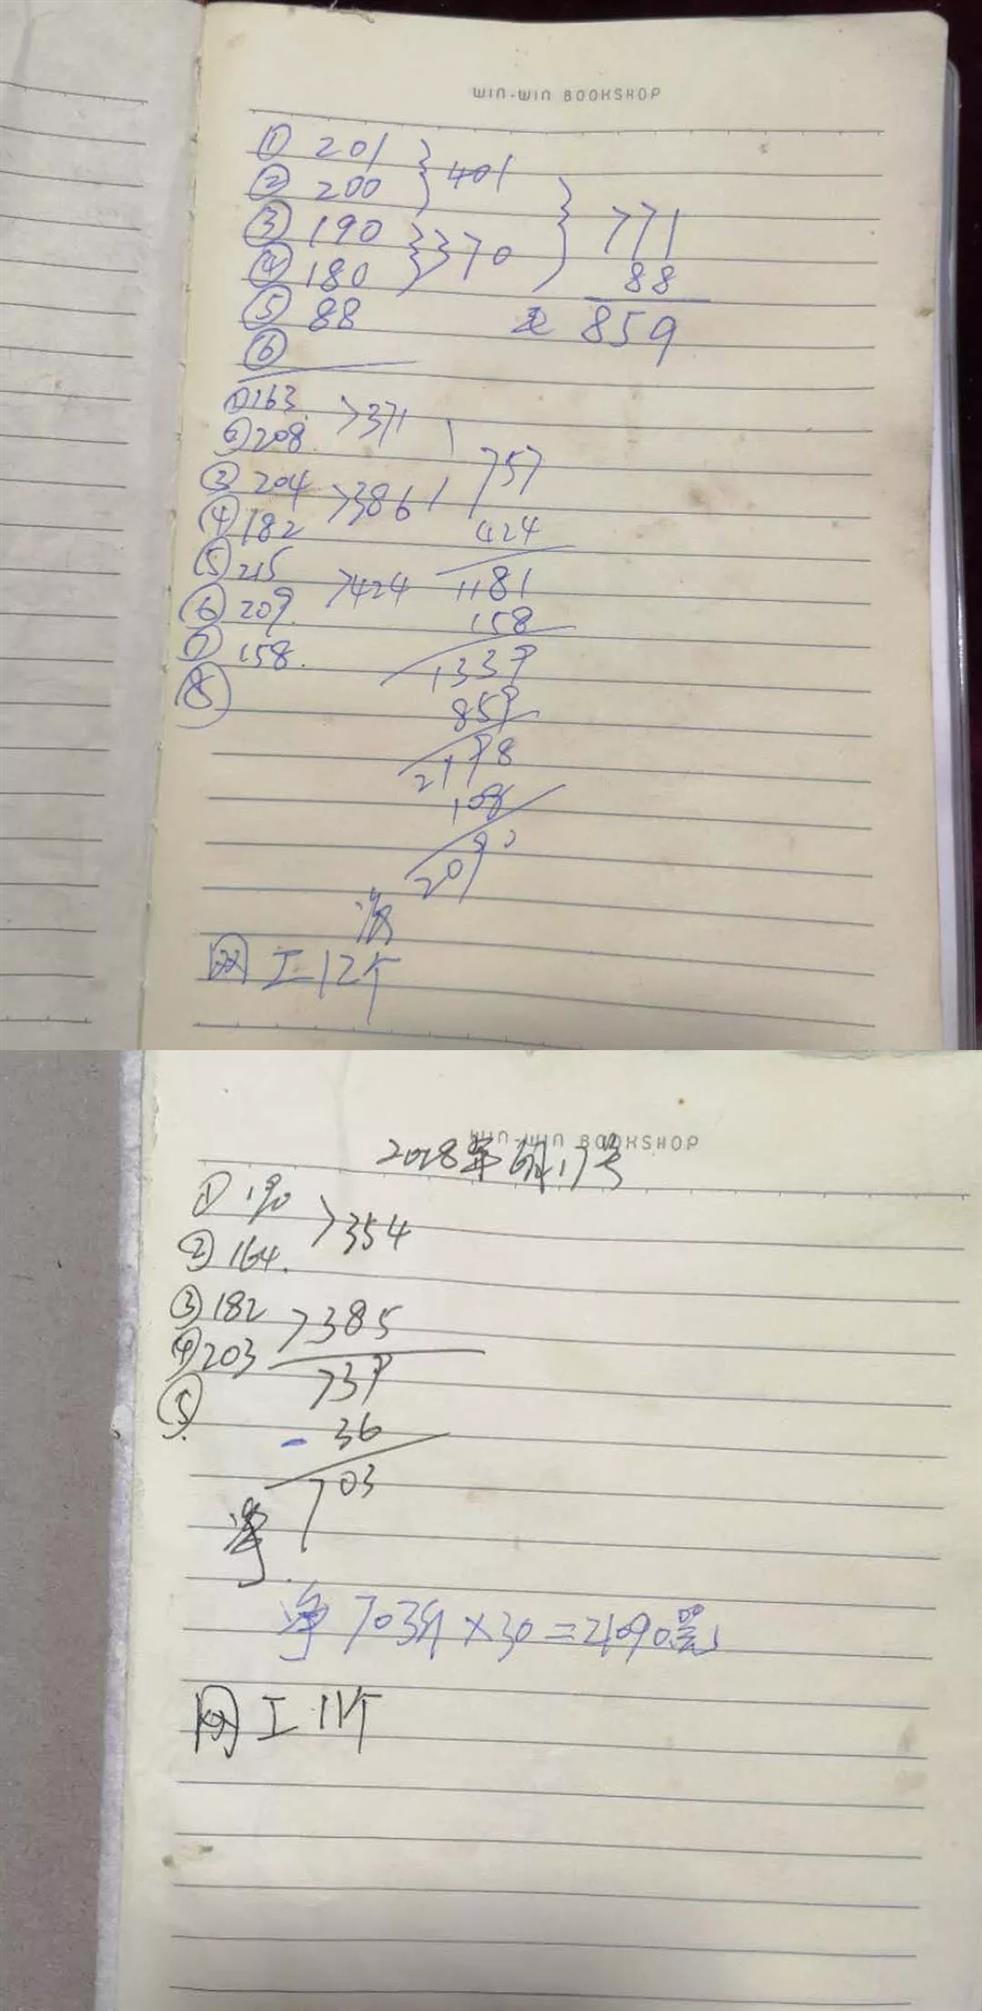 WIN-WIN BOOKSHOP
① 201
② 200
401
③ 190
④ 180
370
771
⑤ 88
88
859
⑥
①163
②208
371
③ 204
④182
386
757
⑤215
⑥ 209
424
424
1181
⑦ 158
158
1339
⑧
859
2198
108
2090
工12个
WIN-WIN BOOKSHOP
2018年6月17号
① 190
② 164
354
③182
④203
385
739
⑤
- 36
703
净
净 703斤×30=21090
工 11个